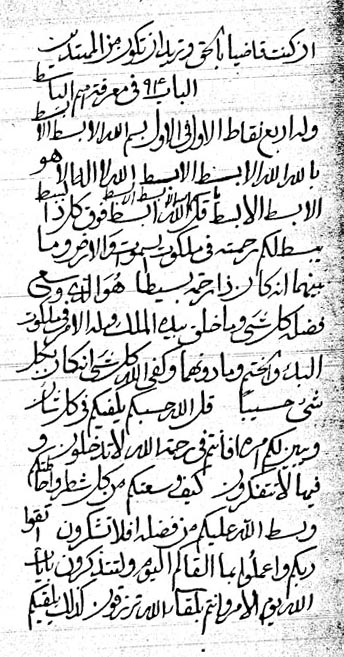 ان كنت قاضيا بالحق وتريد ان تكون من المهتدين
الباب في معرفة اسم الباسط
وله اربع نقاط الاول في الاول بسم الله الابسط الابسط
بالله الله الابسط الابسط الله لا اله الا هو
الابسط الابسط قل الله ابسط فوق كل ذا
يبسط لكم رحمته في ملكوت السموات والارض وما
بينهما انه كان ذا رحمة بسيطا هو الذي وسع
فضله كل شيء وما خلق بيده الملك وله الامر في ملكوت
البدء والختم وما دونهما وكفى الله كل شيء انه كان بكل
شيء حسيبا قل الله حسبكم يلقيكم ذكر
ويبين لكم امره افأنتم في رحمة الله لا تدخلون و
فيها لا تتفكرون كيف وسعتكم من كل شطر واحاطتكم
وبسط الله عليكم من فضله افلا تشكرون اتقوا
ربكم واعملوا بما القاكم اليوم ولتتذكرون بايات
الله يوم الامر وانتم بلقاء الله ترزقون كذلك يلقيكم